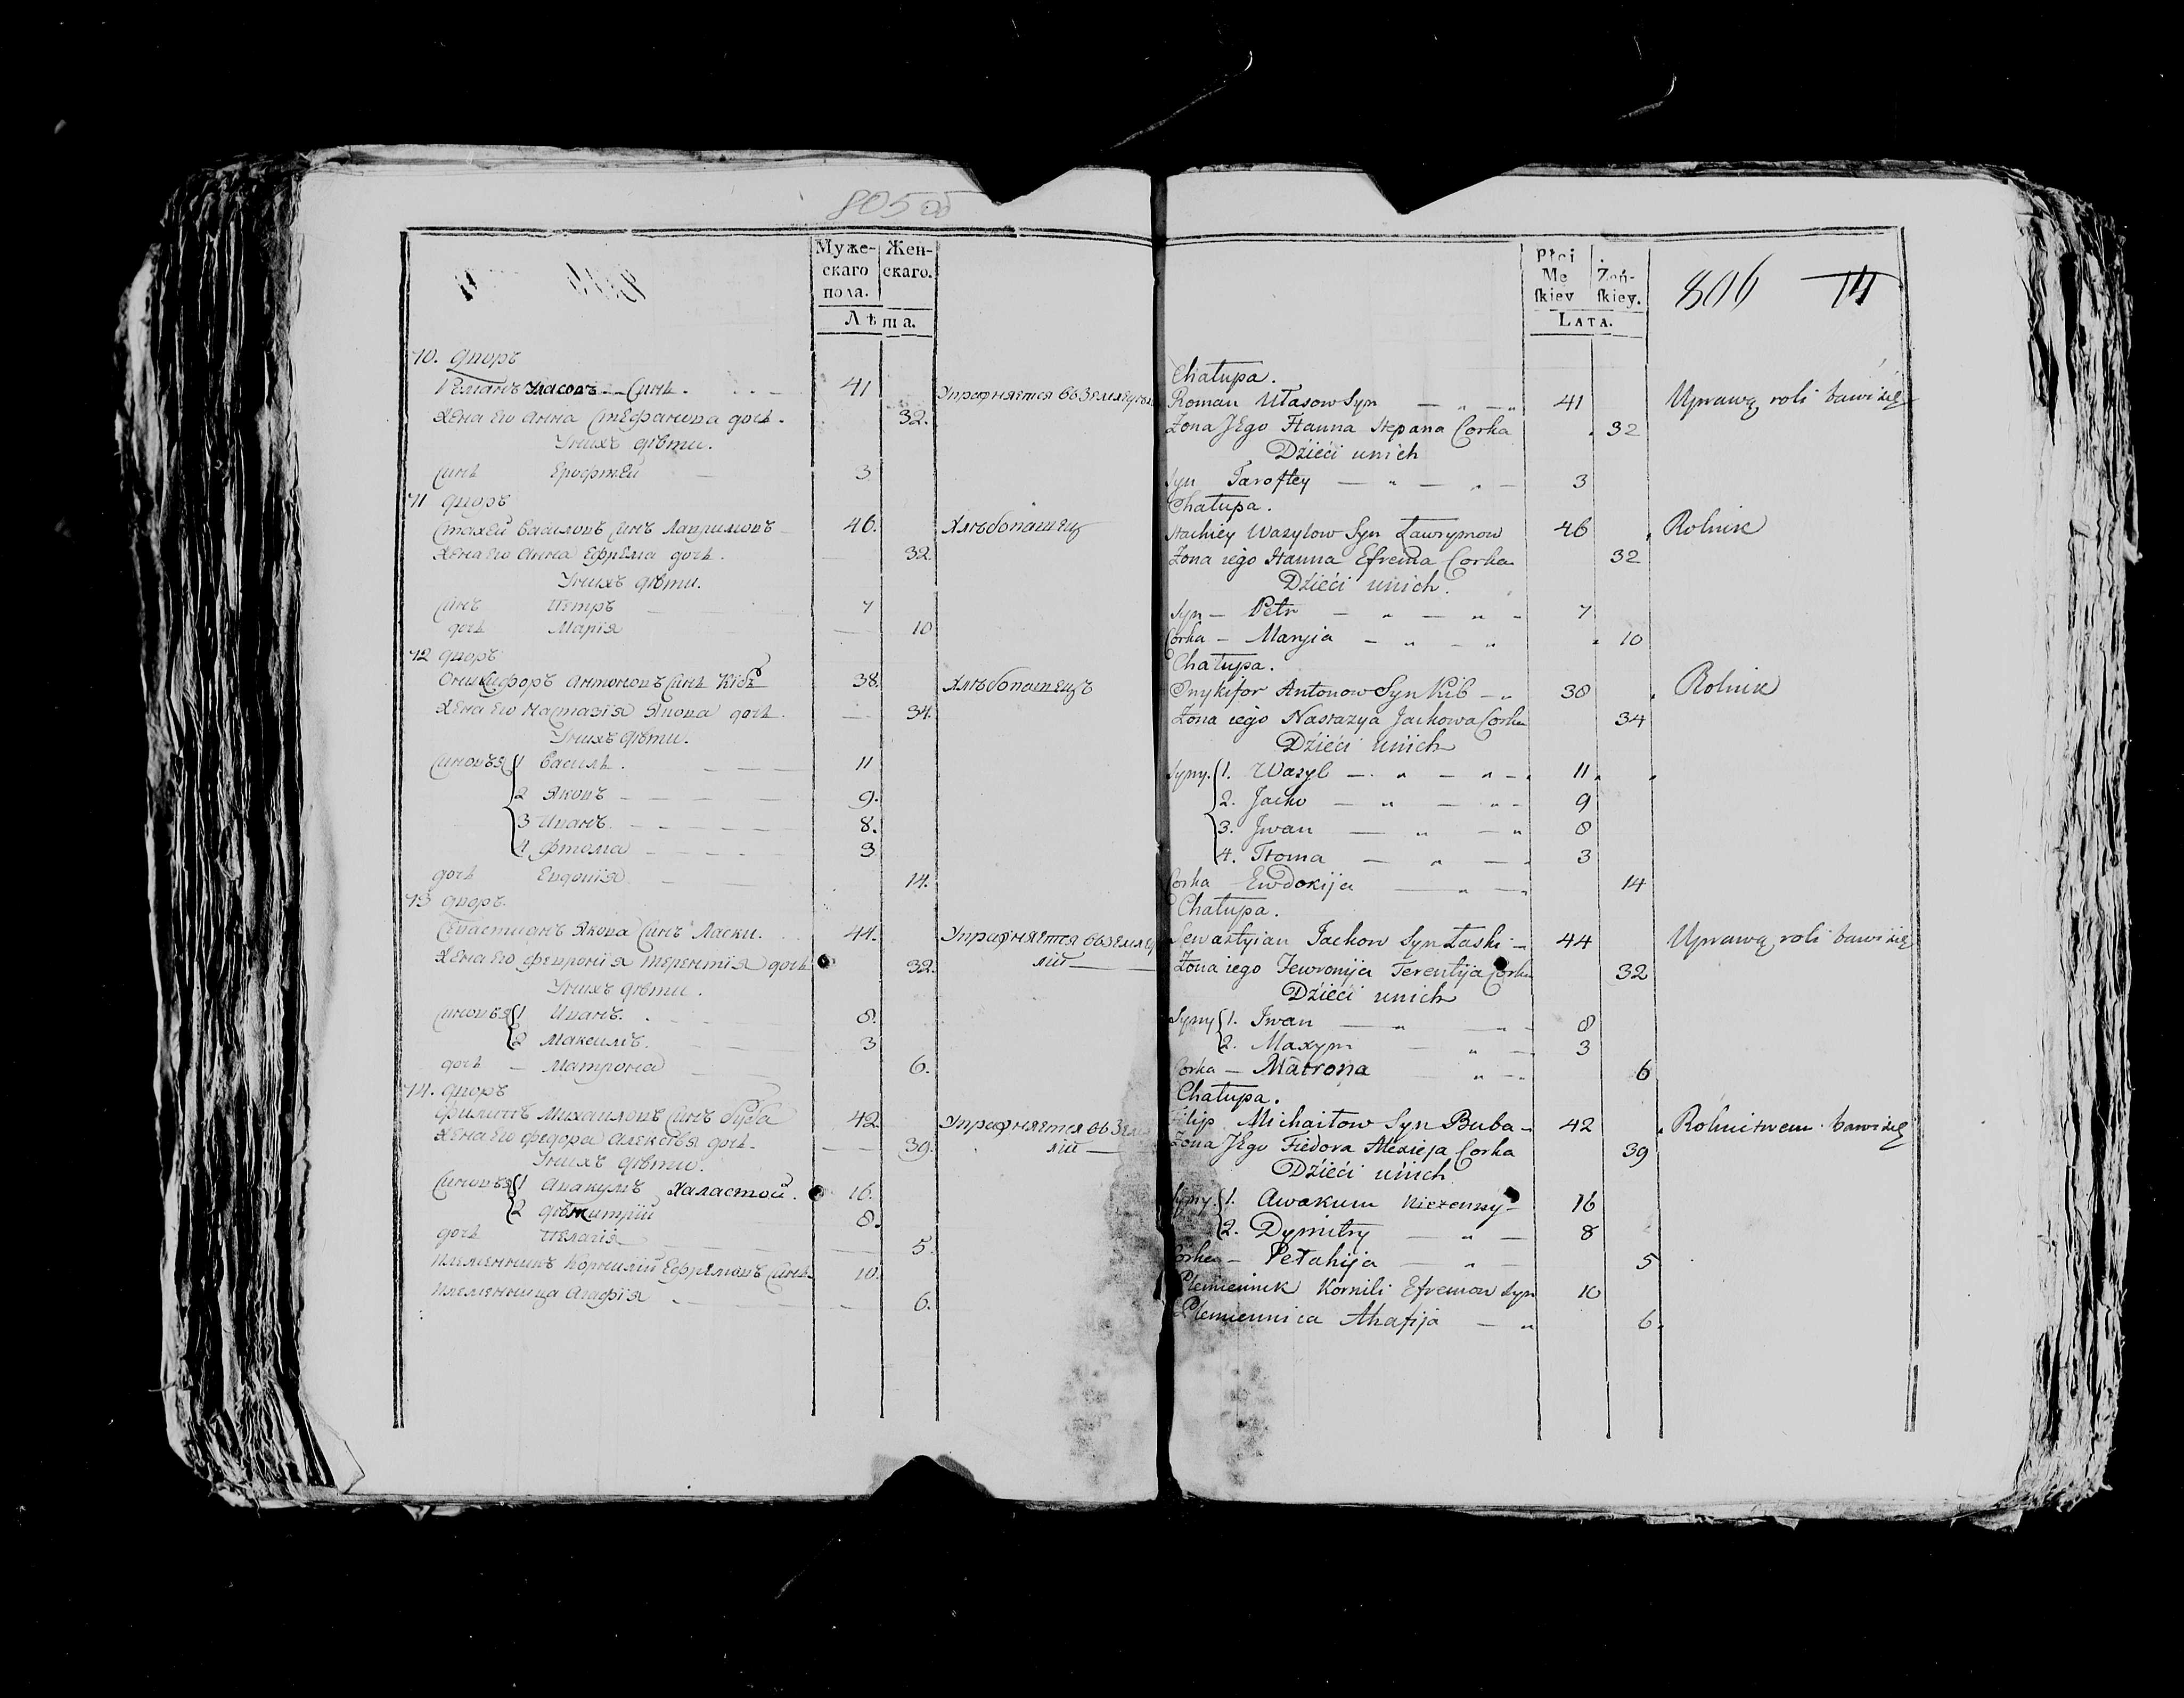 805 об
Муже-
скаго
пола.
Жен-
скаго.
Лѣта.
10. дворъ
Романъ Уласовъ Синъ 41 Упражняется въ земледѣл
Жена его Анна Стефанова дочь 32.
У нихъ дѣти.
Синъ Ерофтей 3
11 дворъ
Стахей Василовъ Синъ Лавримовъ 46. Хлѣбопашец
Жена его Анна Ефрема дочь. 32.
У нихъ дѣти.
Синъ Петръ 7
дочь Марія 10
12 дворъ
Оникифоръ Антоновъ Синъ Кибъ 38. Хлѣбопашецъ
Жена его Настазія Якова дочь. 34.
У нихъ дѣти.
Синовья 1 Василь. 11
2 Яковъ 9.
3 Иванъ 8.
4 Фтома 3
дочь Евдокія 14.
13 дворъ.
Севастианъ Якова Синъ Ласки. 44. Упражняется въ землед
Жена его Феуронія Терентія дочь 32. лій
У нихъ дѣти.
Синовья 1 Иванъ. 8.
2 Максимъ. 3
дочь Матрона 6.
14. дворъ
Филипъ Михаиловъ Синъ Буба 42 Упражняется въ Земле
Жена его Федора Алексѣя дочь. 39. лій
У нихъ дѣти.
Синовья 1 Авакумъ Халастой. 16.
2 Дѣмитрій 8.
дочь Пелагія 5.
Племенникъ Корнилій Ефремовъ Синъ 10.
Племенница Агафія 6.
Płci
Mę
skiey
Żeń-
skiey.
LATA.
806 14
Chałupa.
Roman Ułasow Syn 41 Uprawą roli bawi się
Żona JEgo Hanna Stepana Corka 32
Dzieci unich
Syn Jaroftey 3
Chałupa.
Stachiey Wasylow Syn Ławrymow 46 Rolnik
Żona iego Hanna Efrema Corka 32
Dzieci unich.
Syn Petr 7
Corka Maryia 10
Chałupa.
Onykifor Antonow Syn Kib 38 Rolnik
Żona iego Nastazya Jachowa Corka 34
Dzieci unich
Syny. 1. Wasyl 11
2. Jacko 9
3. Jwan 8
4. Htoma 3
Corka Ewdokija 14
Chałupa.
Sewastyian Jackow Syn Łaski 44 Uprawą roli bawi się
Żona iego Jewronija Terentija Corka 32
Dzieci unich
Syny 1. Jwan 8
2. Maxym 3
Corka Matrona 6
Chałupa.
Filip Michaiłow Syn Buba 42 Rolnictwem bawi się
Żona JEgo Fiedora Alexieja Corka 39
Dzieci unich
Syny. 1. Awakum Nieżenny 16
2. Dymitry 8
Corka Pełahija 5
Plemiennik Kornili Efremow Syn 10
Plemiennica Ahafija 6.